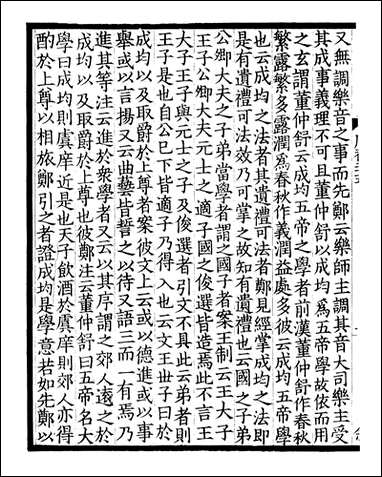 又無調樂音之事而先鄭云樂師主調其音大司樂主受
其成事義理不可且董仲舒以成均爲五帝學故依而用
之玄謂董仲舒云成均五帝之學者前漢董仲舒作春秋
繁露繁多露潤爲春秋作義潤益處多彼云成均五帝學
也云成均之法者其遺禮可法者鄭見經掌成均之法即
是有遺禮可法效乃可掌之故知有遺禮也云國之子弟
公卿大夫之子弟當學者謂之國子者案王制云王大子
王子公卿大夫元士之適子國之俊選皆造焉此不言王
大子王子與元士之子及俊選者引文不具此云弟者則
王子是也自公已下皆適子乃得入也云文王世子曰於
成均以及取爵於上尊者案彼文上云或以德進或以事
舉或以言揚又云曲藝皆誓之以待又語三而一有焉乃
進其等注云進於衆學者又云以其序謂之郊人遠之於
成均以及取爵於上尊也彼鄭注云董仲舒曰五帝名大
學曰成均則虞庠近是也天子飲酒於虞庠則郊人亦得
酌於上尊以相旅鄭引之者證成均是學意若如先鄭以